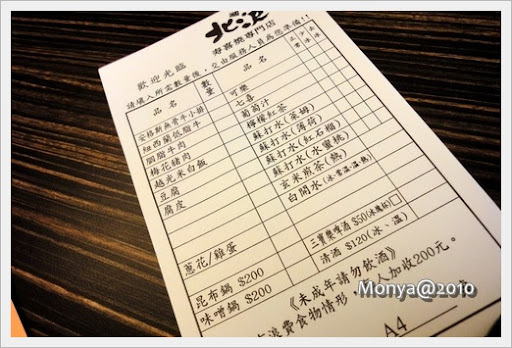 壽喜燒專門店
歡迎光臨
請填入所需數量後，交由服務人員為您準備!!
品名 數量 品名 去冰 少冰
安格斯無骨牛小排 可樂
紐西蘭低脂牛 七喜
胭脂牛肉 葡萄汁
梅花豬肉 檸檬紅茶
越光米白飯 蘇打水(萊姆)
豆腐 蘇打水(薄荷)
腐皮 蘇打水(紅石榴)
蘇打水(水蜜桃)
玄米煎茶(熱)
白開水(冰.常溫.溫.熱)
蔥花/雞蛋 三寶樂啤酒 $50(冰鎮杯)
昆布鍋 $200 清酒 $120(冰、溫)
味噌鍋 $200
《未成年請勿飲酒》
浪費食物情形，
人加收200元。
A4
Monya@2010